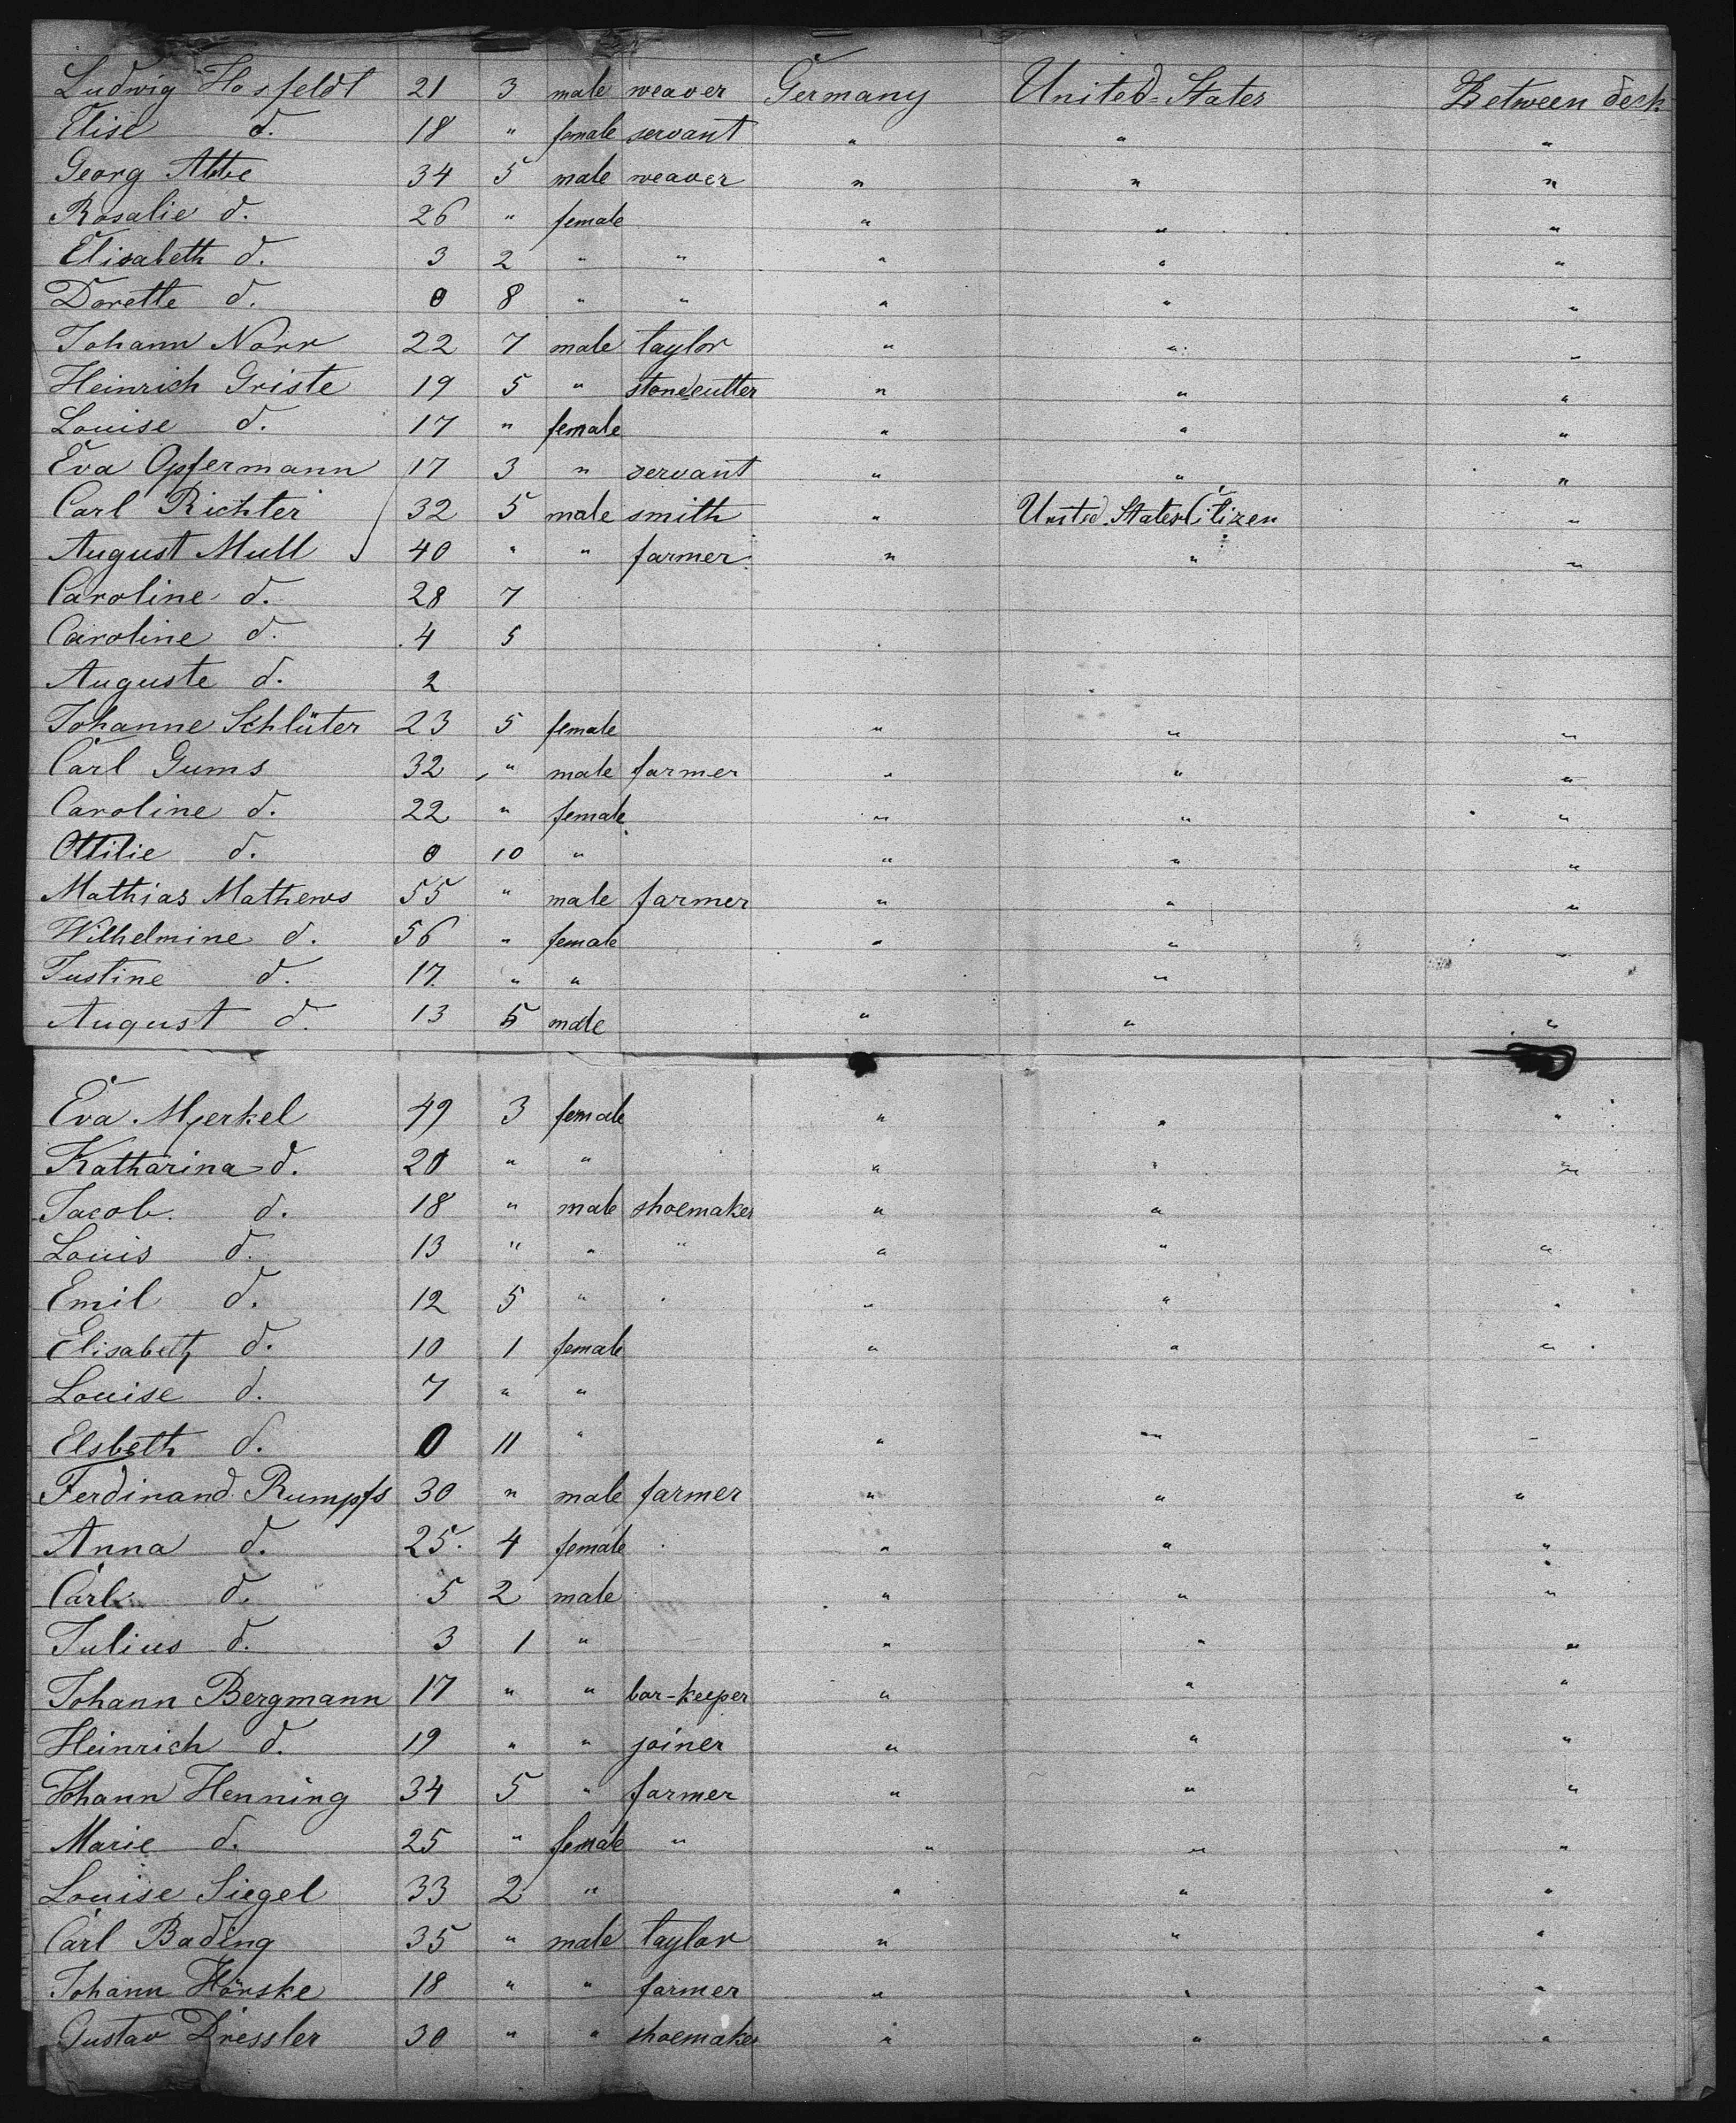 Ludwig Hosfeldt 21 3 male weaver Germany United-States Between deck
Elise d. 18 " female servant " " "
Georg Abbe 34 5 male weaver " " "
Rosalie d. 26 " female " " "
Elisabeth d. 3 2 " " " " "
Dorette d. 0 8 " " " " "
Johann Nörr 22 7 male taylor " " "
Heinrich Griste 19 5 " stonecutter " " "
Louise d. 17 " female " " "
Eva Opfermann 17 3 " servant " " "
Carl Richter 32 5 male smith " United States Citizen "
August Mull 40 " " farmer " " "
Caroline d. 28 7
Caroline d. 4 5
Auguste d. 2
Johanne Schlüter 23 5 female " " "
Carl Gums 32 " male farmer " " "
Caroline d. 22 " female " " "
Ottilie d. 0 10 " " " "
Mathias Mathews 55 " male farmer " " "
Wilhelmine d. 56 " female " " "
Justine d. 17 " " "
August d. 13 5 male " " "
Eva Myerkel 49 3 female " " "
Katharina d. 20 " " " " "
Jacob d. 18 " male shoemaker " "
Louis d. 13 " " " " " "
Emil d. 12 5 " " " "
Elisabeth d. 10 1 female " " "
Louise d. 7 " "
Elsbeth d. 0 11 " " " "
Ferdinand Rumpfs 30 " male farmer " " "
Anna d. 25 4 female " " "
Carl d. 5 2 male " " "
Julius d. 3 1 " " " "
Johann Bergmann 17 " " bar-keeper " " "
Heinrich d. 19 " " joiner " " "
Johann Henning 34 5 " farmer " " "
Marie d. 25 " female " " " "
Louise Siegel 33 2 " " " "
Carl Bading 35 " male taylor " " "
Johann Hörske 18 " " farmer " " "
Gustav Dressler 30 " " shoemaker " " "